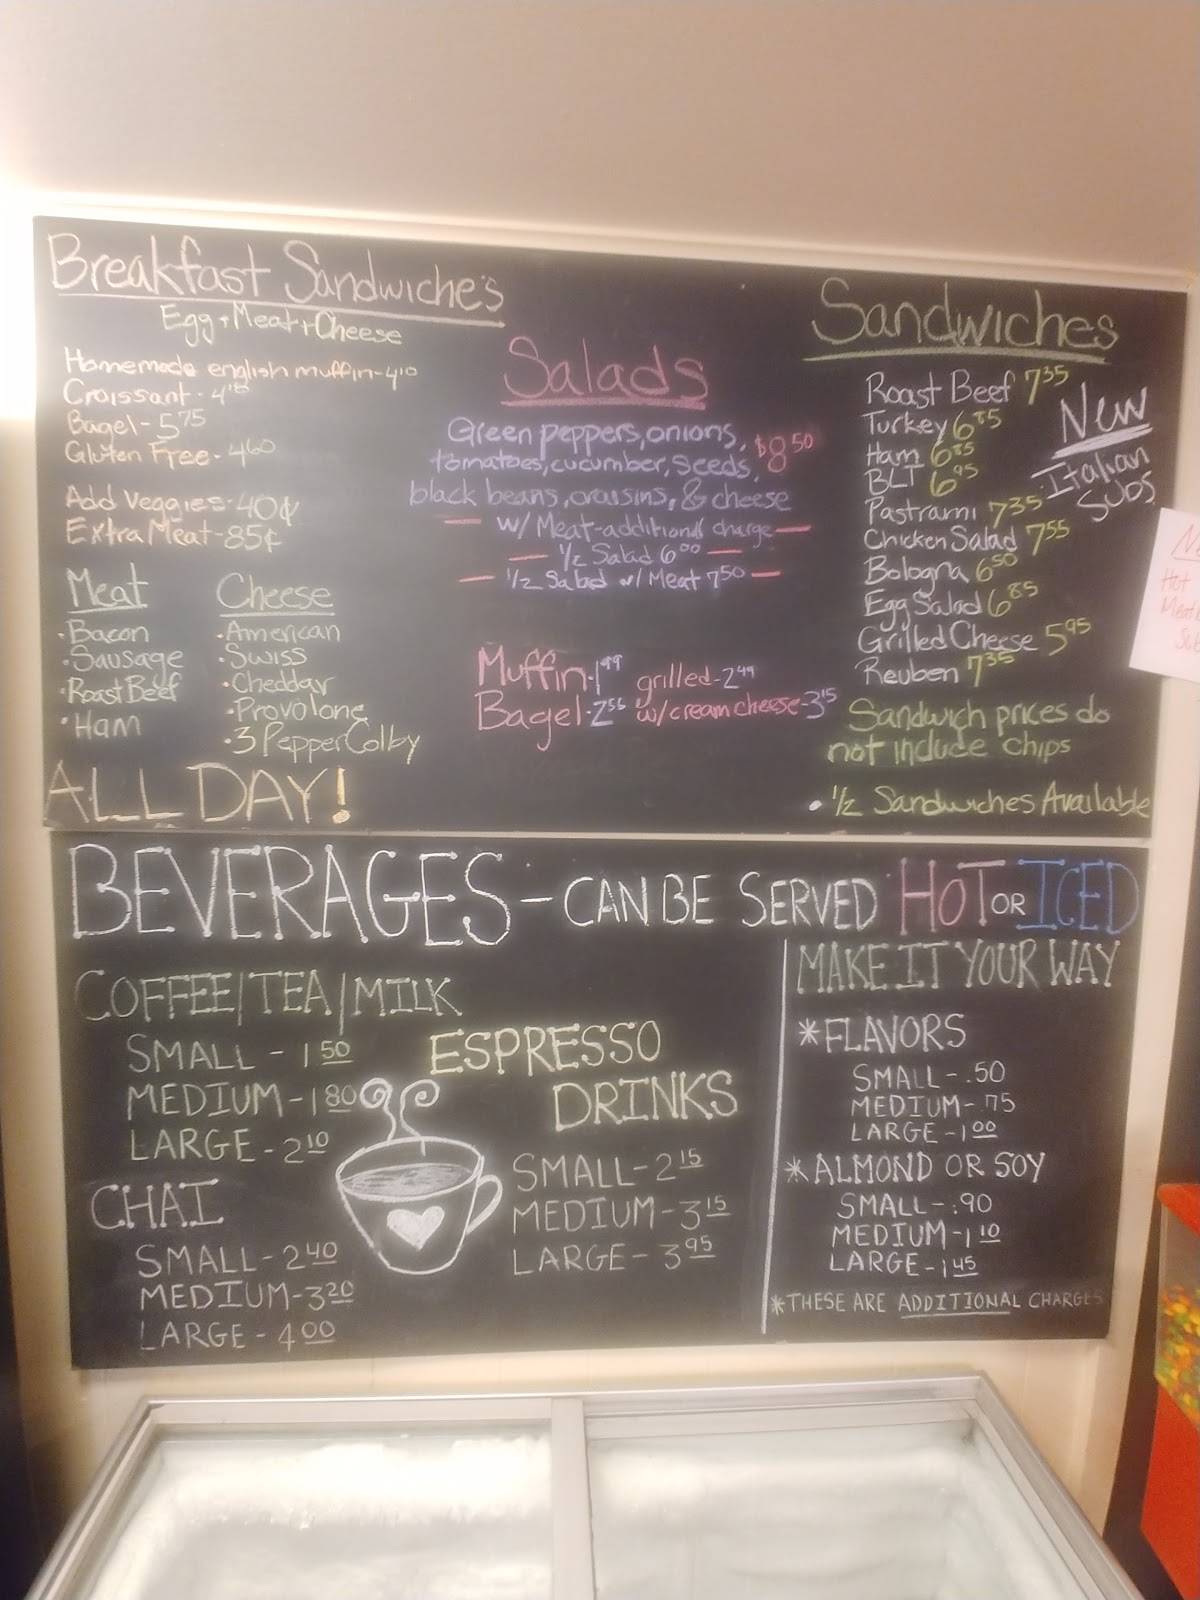 Breakfast Sandwiche's
Egg + Meat + Cheese
Homemade english muffin - 4.10
Croissant - 4
Bagel - 5.75
Gluten Free - 4.60
Add Veggies - 40¢
Extra Meat - 85¢
Meat
• Bacon
• Sausage
• Roast Beef
• Ham
Cheese
• American
• Swiss
• Cheddar
• Provolone
• 3 Pepper Colby
ALL DAY!
Salads
Green peppers, onions,
tomatoes, cucumber, seeds,
black beans, craisins, & cheese
$8.50
— w/ Meat - additional charge —
— 1/2 Salad 6.00 —
— 1/2 Salad w/ Meat 7.50 —
Muffin - 1.99 grilled - 2.49
Bagel - 2 w/ cream cheese - 3.15
Sandwiches
Roast Beef 7.35
Turkey 6.85
Ham 6.85
BLT 6.95
Pastrami 7.35
Chicken Salad 7.55
Bologna 6.50
Egg Salad 6.85
Grilled Cheese 5.95
Reuben 7.35
New
Italian
Subs
Sandwich prices do
not include chips
• 1/2 Sandwiches Available
BEVERAGES - CAN BE SERVED HOT OR ICED
COFFEE/TEA/MILK
SMALL - 1.50
MEDIUM - 1.80
LARGE - 2.10
CHAI
SMALL - 2.40
MEDIUM - 3.20
LARGE - 4.00
ESPRESSO
DRINKS
SMALL - 2.15
MEDIUM - 3.15
LARGE - 3.95
MAKE IT YOUR WAY
*FLAVORS
SMALL - .50
MEDIUM - .75
LARGE - 1.00
*ALMOND OR SOY
SMALL - .90
MEDIUM - 1.10
LARGE - 1.45
*THESE ARE ADDITIONAL CHARGES
Hot